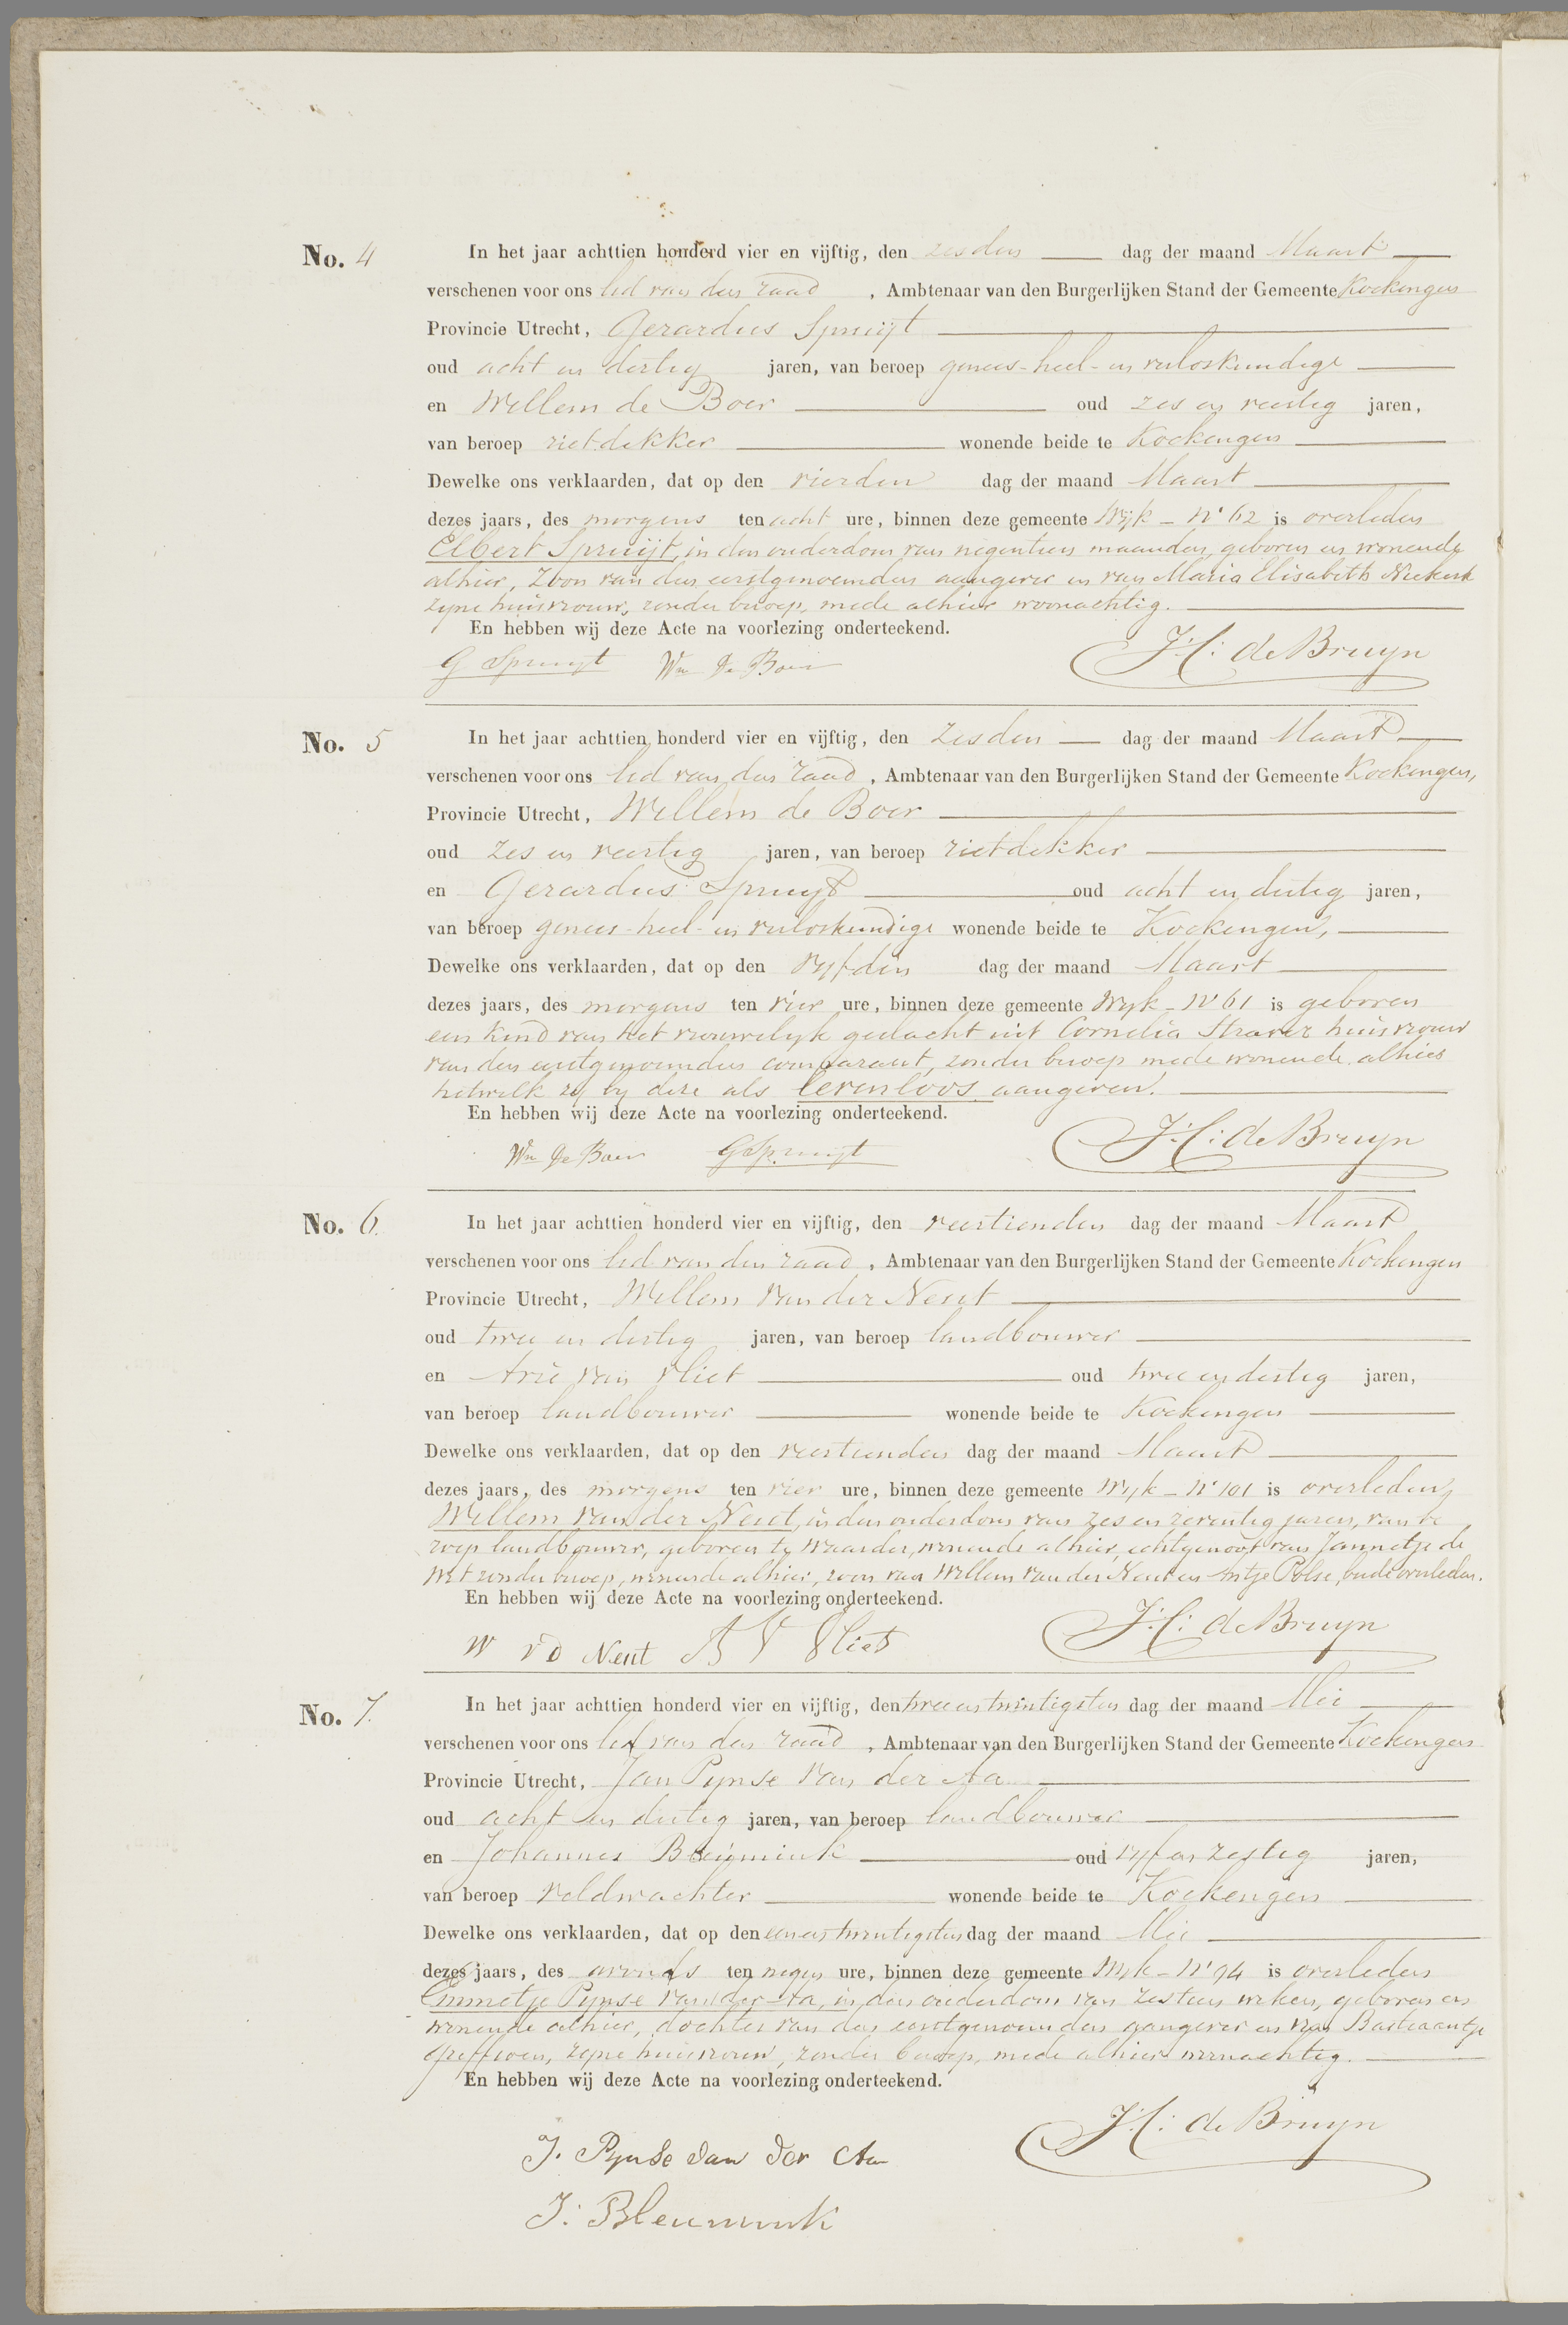 No. 4
In het jaar achttien honderd vier en vijftig, den zesden dag der maand Maart
verschenen voor ons lid van den raad, Ambtenaar van den Burgerlijken Stand der Gemeente Kockengen
Provincie Utrecht, Gerardus Spruijt
oud acht en dertig jaren, van beroep genees- heel- en verloskundige
en Willem de Boer oud zes en veertig jaren,
van beroep rietdekker wonende beide te Kockengen
Dewelke ons verklaarden, dat op den vierden dag der maand Maart
dezes jaars, des morgens ten acht ure, binnen deze gemeente Wijk - No 62 is overleden
Elbert Spruijt, in den ouderdom van negentien maanden, geboren en wonende
alhier, Zoon van den eerstgenoemden aangever en van Maria Elisabeth Niekerk
zyne huisvrouw, zonder beroep, mede alhier woonachtig.
En hebben wij deze Acte na voorlezing onderteekend.
G Spruyt Wm De Boer J.C: de Bruyn
No. 5
In het jaar achttien honderd vier en vijftig, den zesden dag der maand Maart
verschenen voor ons lid van den raad, Ambtenaar van den Burgerlijken Stand der Gemeente Kockengen,
Provincie Utrecht, Willem de Boer
oud zes en veertig jaren, van beroep rietdekker
en Gerardus Spruijt oud acht en dertig jaren,
van beroep genees- heel- en verloskundige wonende beide te Kockengen,
Dewelke ons verklaarden, dat op den vyfden dag der maand Maart
dezes jaars, des morgens ten vier ure, binnen deze gemeente Wyk - No 61 is geboren
een kind van het vrouwelyk geslacht uit Cornelia Straver huisvrouw
van den eerstgenoemden comparant, zonder beroep mede wonende alhier
hetwelk zy by deze als levenloos aangeven.
En hebben wij deze Acte na voorlezing onderteekend.
Wm De Boer G Spruyt J.C: de Bruyn
No. 6.
In het jaar achttien honderd vier en vijftig, den veertienden dag der maand Maart
verschenen voor ons lid van den raad, Ambtenaar van den Burgerlijken Stand der Gemeente Kockengen
Provincie Utrecht, Willem van der Neut
oud twee en dertig jaren, van beroep landbouwer
en Arie van Vliet oud twee en dertig jaren,
van beroep landbouwer wonende beide te Kockengen
Dewelke ons verklaarden, dat op den veertienden dag der maand Maart
dezes jaars, des morgens ten vier ure, binnen deze gemeente Wyk - No 101 is overleden
Willem van der Neut, in den ouderdom van zes en zeventig jaren, van be
roep landbouwer, geboren te Waarder, wonende alhier, echtgenoot van Jannetje de
Wit zonder beroep, wonende alhier, zoon van Willem van der Neut en Antje Polse, beide overleden.
En hebben wij deze Acte na voorlezing onderteekend.
W v d Neut A V Vliet J.C: de Bruyn
No. 7.
In het jaar achttien honderd vier en vijftig, den twee en twintigsten dag der maand Mei
verschenen voor ons lid van den raad, Ambtenaar van den Burgerlijken Stand der Gemeente Kockengen
Provincie Utrecht, Jan Pynse van der Aa
oud acht en dertig jaren, van beroep landbouwer
en Johannes Bleumink oud vyf en zestig jaren,
van beroep veldwachter wonende beide te Kockengen
Dewelke ons verklaarden, dat op den een en twintigsten dag der maand Mei
dezes jaars, des avonds ten negen ure, binnen deze gemeente Wyk - No 94 is overleden
Emmetje Pynse van der Aa, in den ouderdom van zestien weken, geboren en
wonende alhier, dochter van den eerstgenoemden aangever en van Bastiaantje
Griffioen, zyne huisvrouw, zonder beroep, mede alhier woonachtig.
En hebben wij deze Acte na voorlezing onderteekend.
J.C: de Bruyn
J. Pynse van der Aa
J: Bleumink